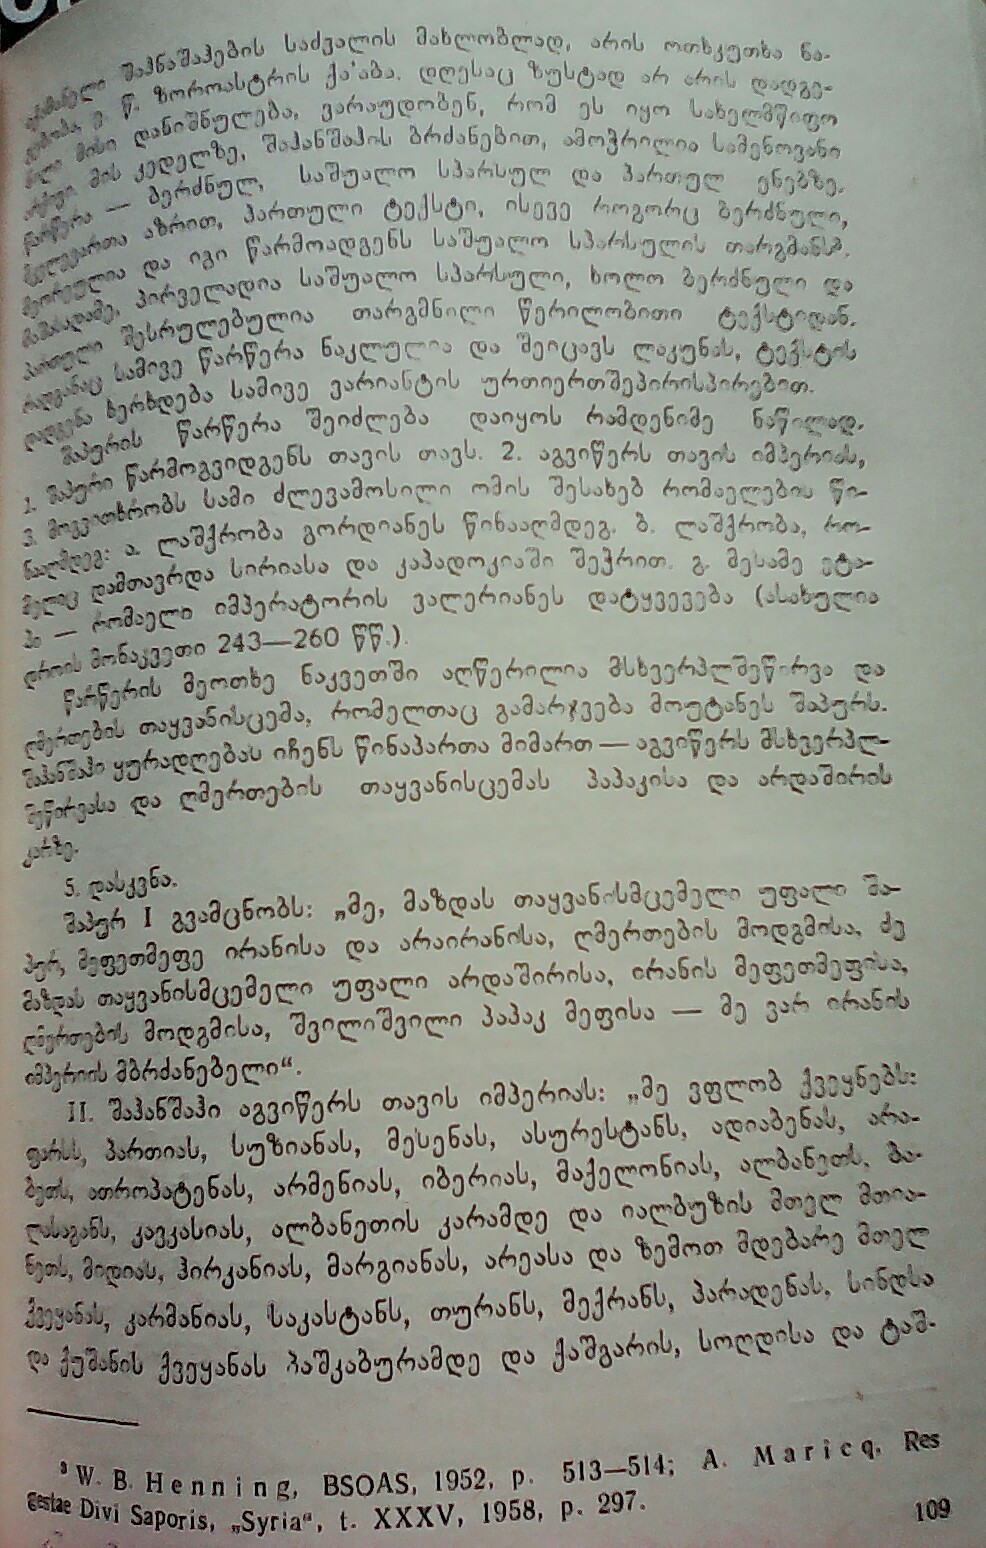 შაჰნაშაჰების საძვალის მახლობლად, არის ოთხკუთხა ნა-
გებობა, ე. წ. ზოროასტრის ქა'აბა. დღესაც ზუსტად არ არის დადგე-
ნილი მისი დანიშნულება, ვარაუდობენ, რომ ეს იყო სახელმწიფო
არქივი მის კედელზე, შაჰანშაჰის ბრძანებით, ამოჭრილია სამენოვანი
წარწერა — ბერძნულ, საშუალო სპარსულ და პართულ ენებზე.
მკვლევართა აზრით, პართული ტექსტი, ისევე როგორც ბერძნული,
მეორეულია და იგი წარმოადგენს საშუალო სპარსულის თარგმანს³.
მაშასადამე, პირველადია საშუალო სპარსული, ხოლო ბერძნული და
პართული შესრულებულია თარგმნილი წერილობითი ტექსტიდან.
რადგანაც სამივე წარწერა ნაკლულია და შეიცავს ლაკუნას, ტექსტის
დადგენა ხერხდება სამივე ვარიანტის ურთიერთშეპირისპირებით.
შაპურის წარწერა შეიძლება დაიყოს რამდენიმე ნაწილად.
1. შაპური წარმოგვიდგენს თავის თავს. 2. აგვიწერს თავის იმპერიას,
3. მოგვითხრობს სამი ძლევამოსილი ომის შესახებ რომაელების წი-
ნააღმდეგ: ა. ლაშქრობა გორდიანეს წინააღმდეგ. ბ. ლაშქრობა, რო-
მელიც დამთავრდა სირიასა და კაპადოკიაში შეჭრით. გ. მესამე ეტა-
პი — რომაელი იმპერატორის ვალერიანეს დატყვევება (ასახულია
დროის მონაკვეთი 243—260 წწ.).
წარწერის მეოთხე ნაკვეთში აღწერილია მსხვერპლშეწირვა და
ღმერთების თაყვანისცემა, რომელთაც გამარჯვება მოუტანეს შაპურს.
შაჰანშაჰი ყურადღებას იჩენს წინაპართა მიმართ — აგვიწერს მსხვერპლ-
შეწირვასა და ღმერთების თაყვანისცემას პაპაკისა და არდაშირის
კარზე.
5. დასკვნა.
შაპურ I გვამცნობს: „მე, მაზდას თაყვანისმცემელი უფალი შა-
პურ, მეფეთმეფე ირანისა და არაირანისა, ღმერთების მოდგმისა, ძე
მაზდას თაყვანისმცემელი უფალი არდაშირისა, ირანის მეფეთმეფისა,
ღმერთების მოდგმისა, შვილიშვილი პაპაკ მეფისა — მე ვარ ირანის
იმპერიის მბრძანებელი“.
II. შაჰანშაჰი აგვიწერს თავის იმპერიას: „მე ვფლობ ქვეყნებს:
ფარსს, პართიას, სუზიანას, მესენას, ასურესტანს, ადიაბენას, არა-
ბეთს, ათროპატენას, არმენიას, იბერიას, მაქელონიას, ალბანეთს, ბა-
ლასაგანს, კავკასიას, ალბანეთის კარამდე და იალბუზის მთელ მთია-
ნეთს, მიდიას, ჰირკანიას, მარგიანას, არეასა და ზემოთ მდებარე მთელ
ქვეყანას, კარმანიას, საკასტანს, თურანს, მექრანს, პარადენას, სინდსა
და ქუშანის ქვეყანას პაშკაბურამდე და ქაშგარის, სოღდისა და ტაშ-
³ W. B. Henning, BSOAS, 1952, p. 513—514; A. Maricq, Res
Gestae Divi Saporis, „Syria“, t. XXXV, 1958, p. 297.
109